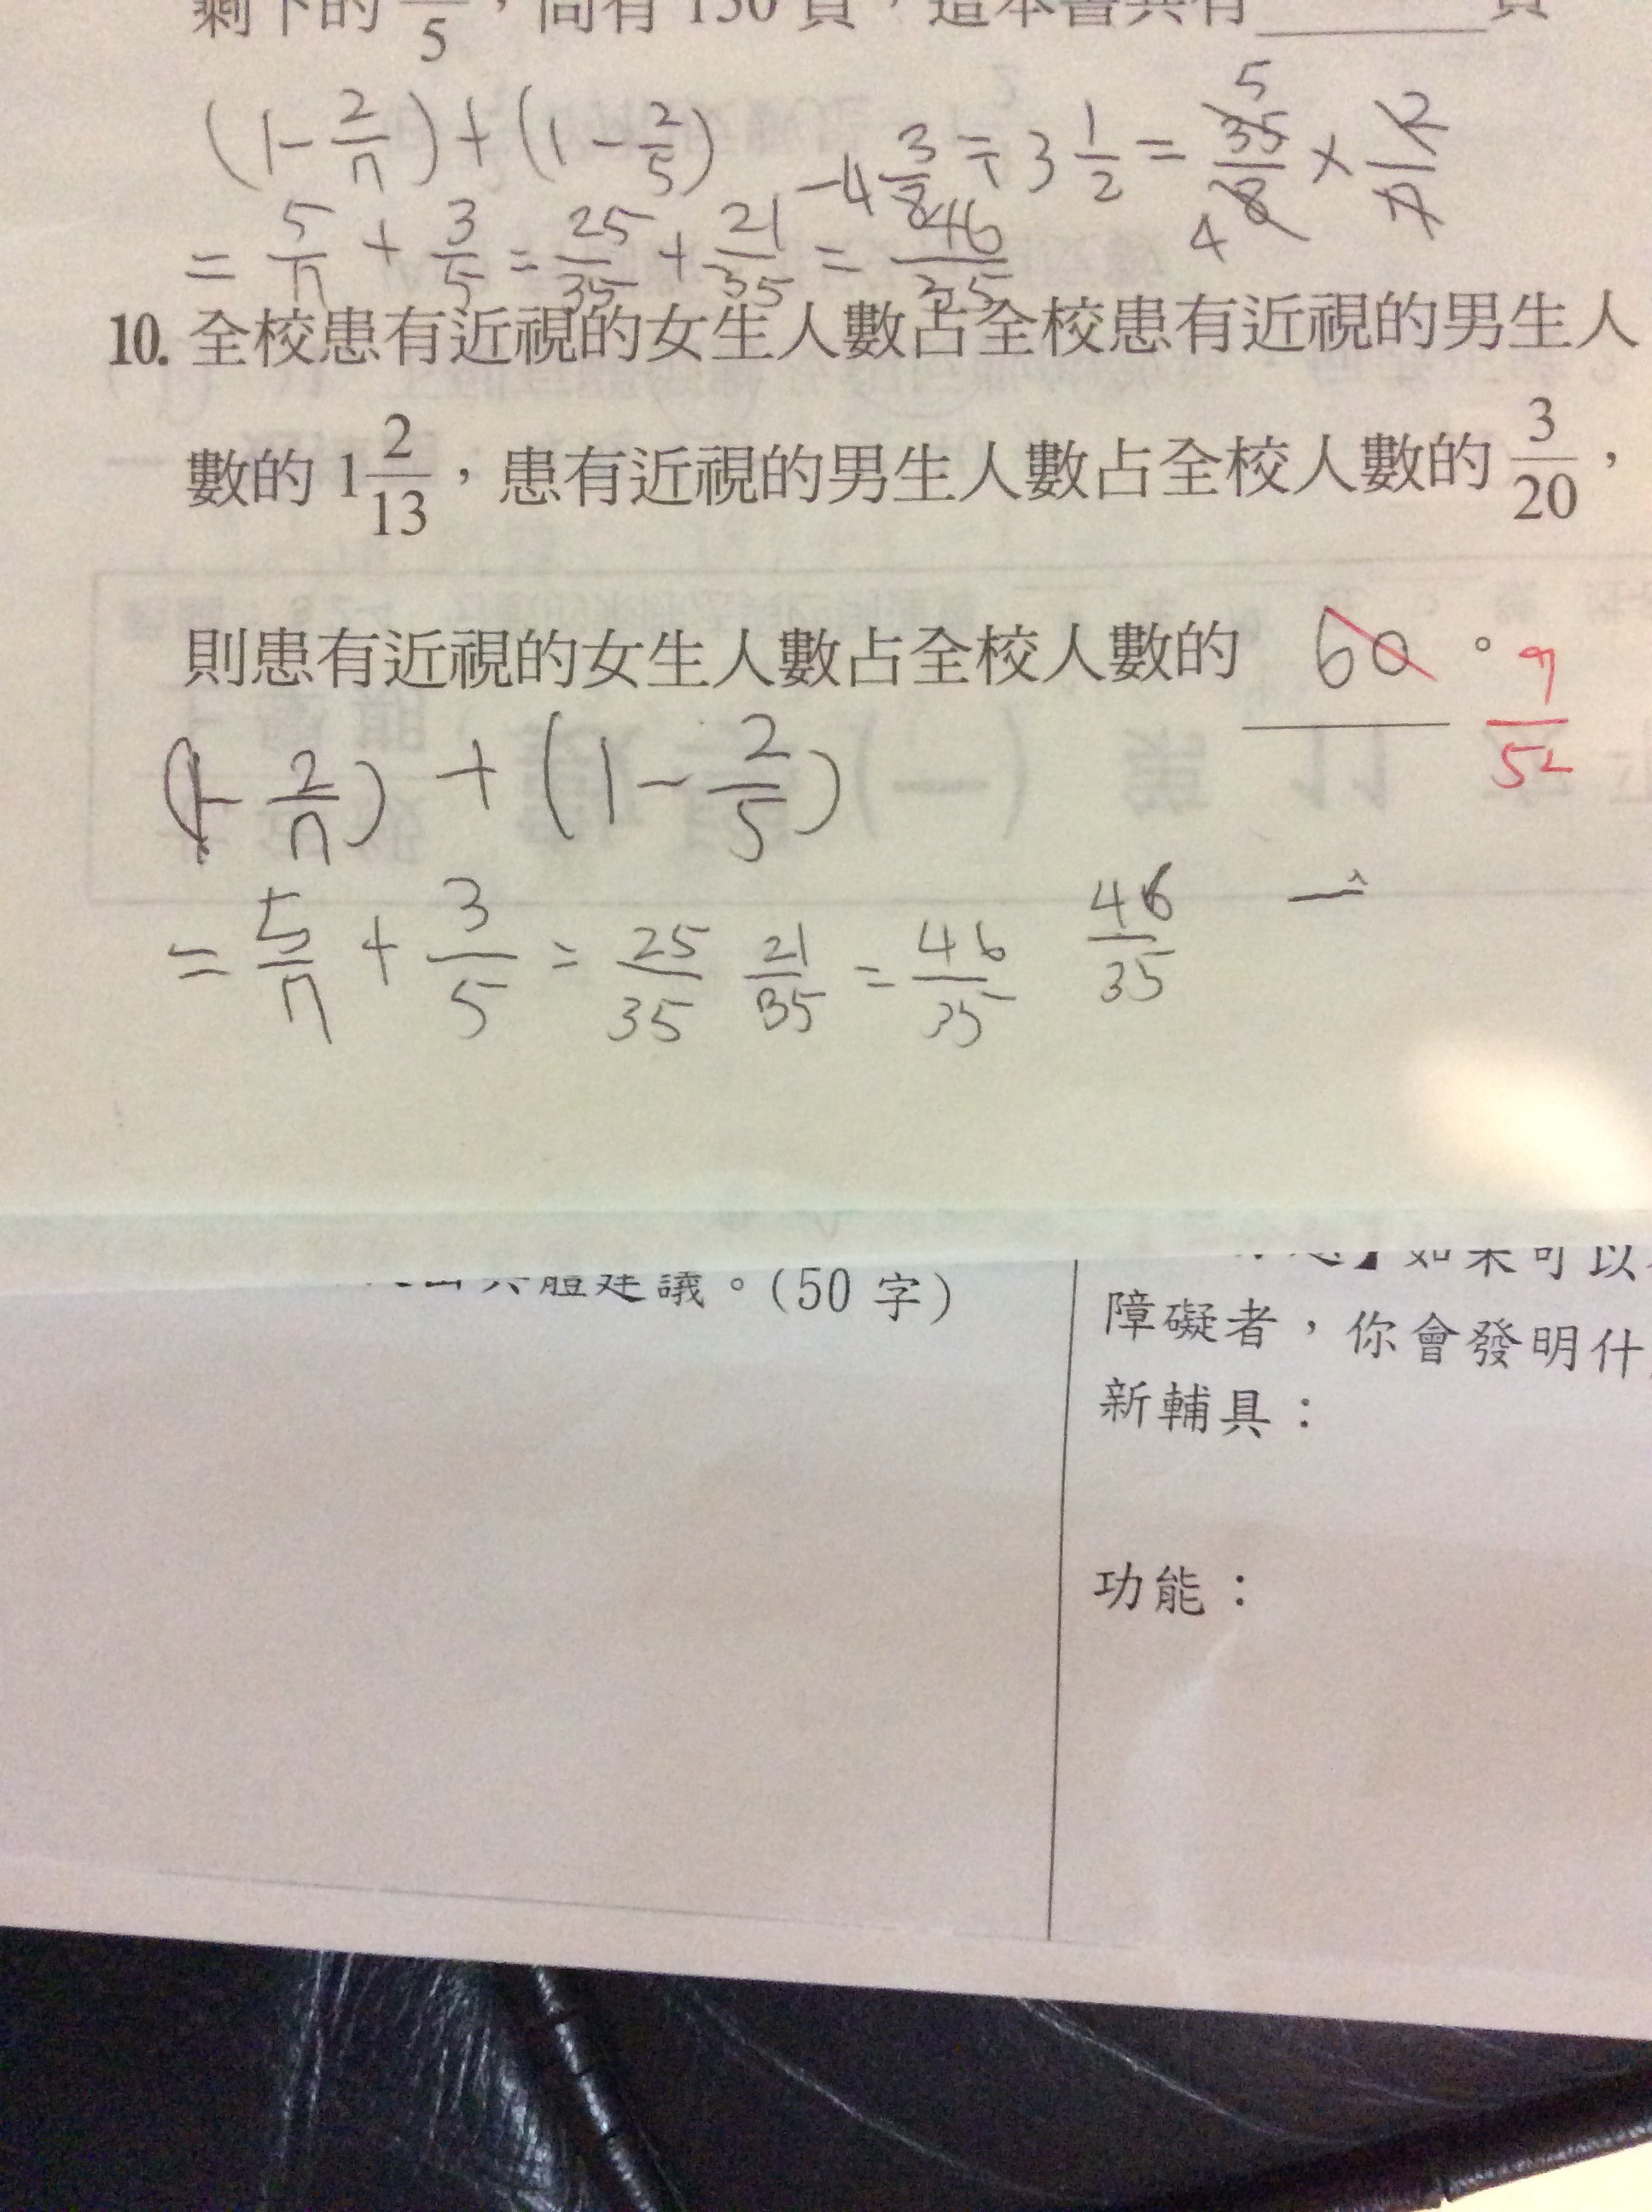 剩下的 5，尚有 150 頁，這本書共有______頁
(1-2/7)+(1-2/5) -4 3/8 ÷ 3 1/2 = 35/8 × 2/7
5
4
= 5/7 + 3/5 = 25/35 + 21/35 = 46/35
10. 全校患有近視的女生人數占全校患有近視的男生人
數的 1 2/13，患有近視的男生人數占全校人數的 3/20，
則患有近視的女生人數占全校人數的 60 。 9/52
(1-2/7) + (1-2/5)
= 5/7 + 3/5 = 25/35 21/35 = 46/35 46/35
具體建議。(50 字)
】如果可以
障礙者，你會發明什
新輔具：
功能：